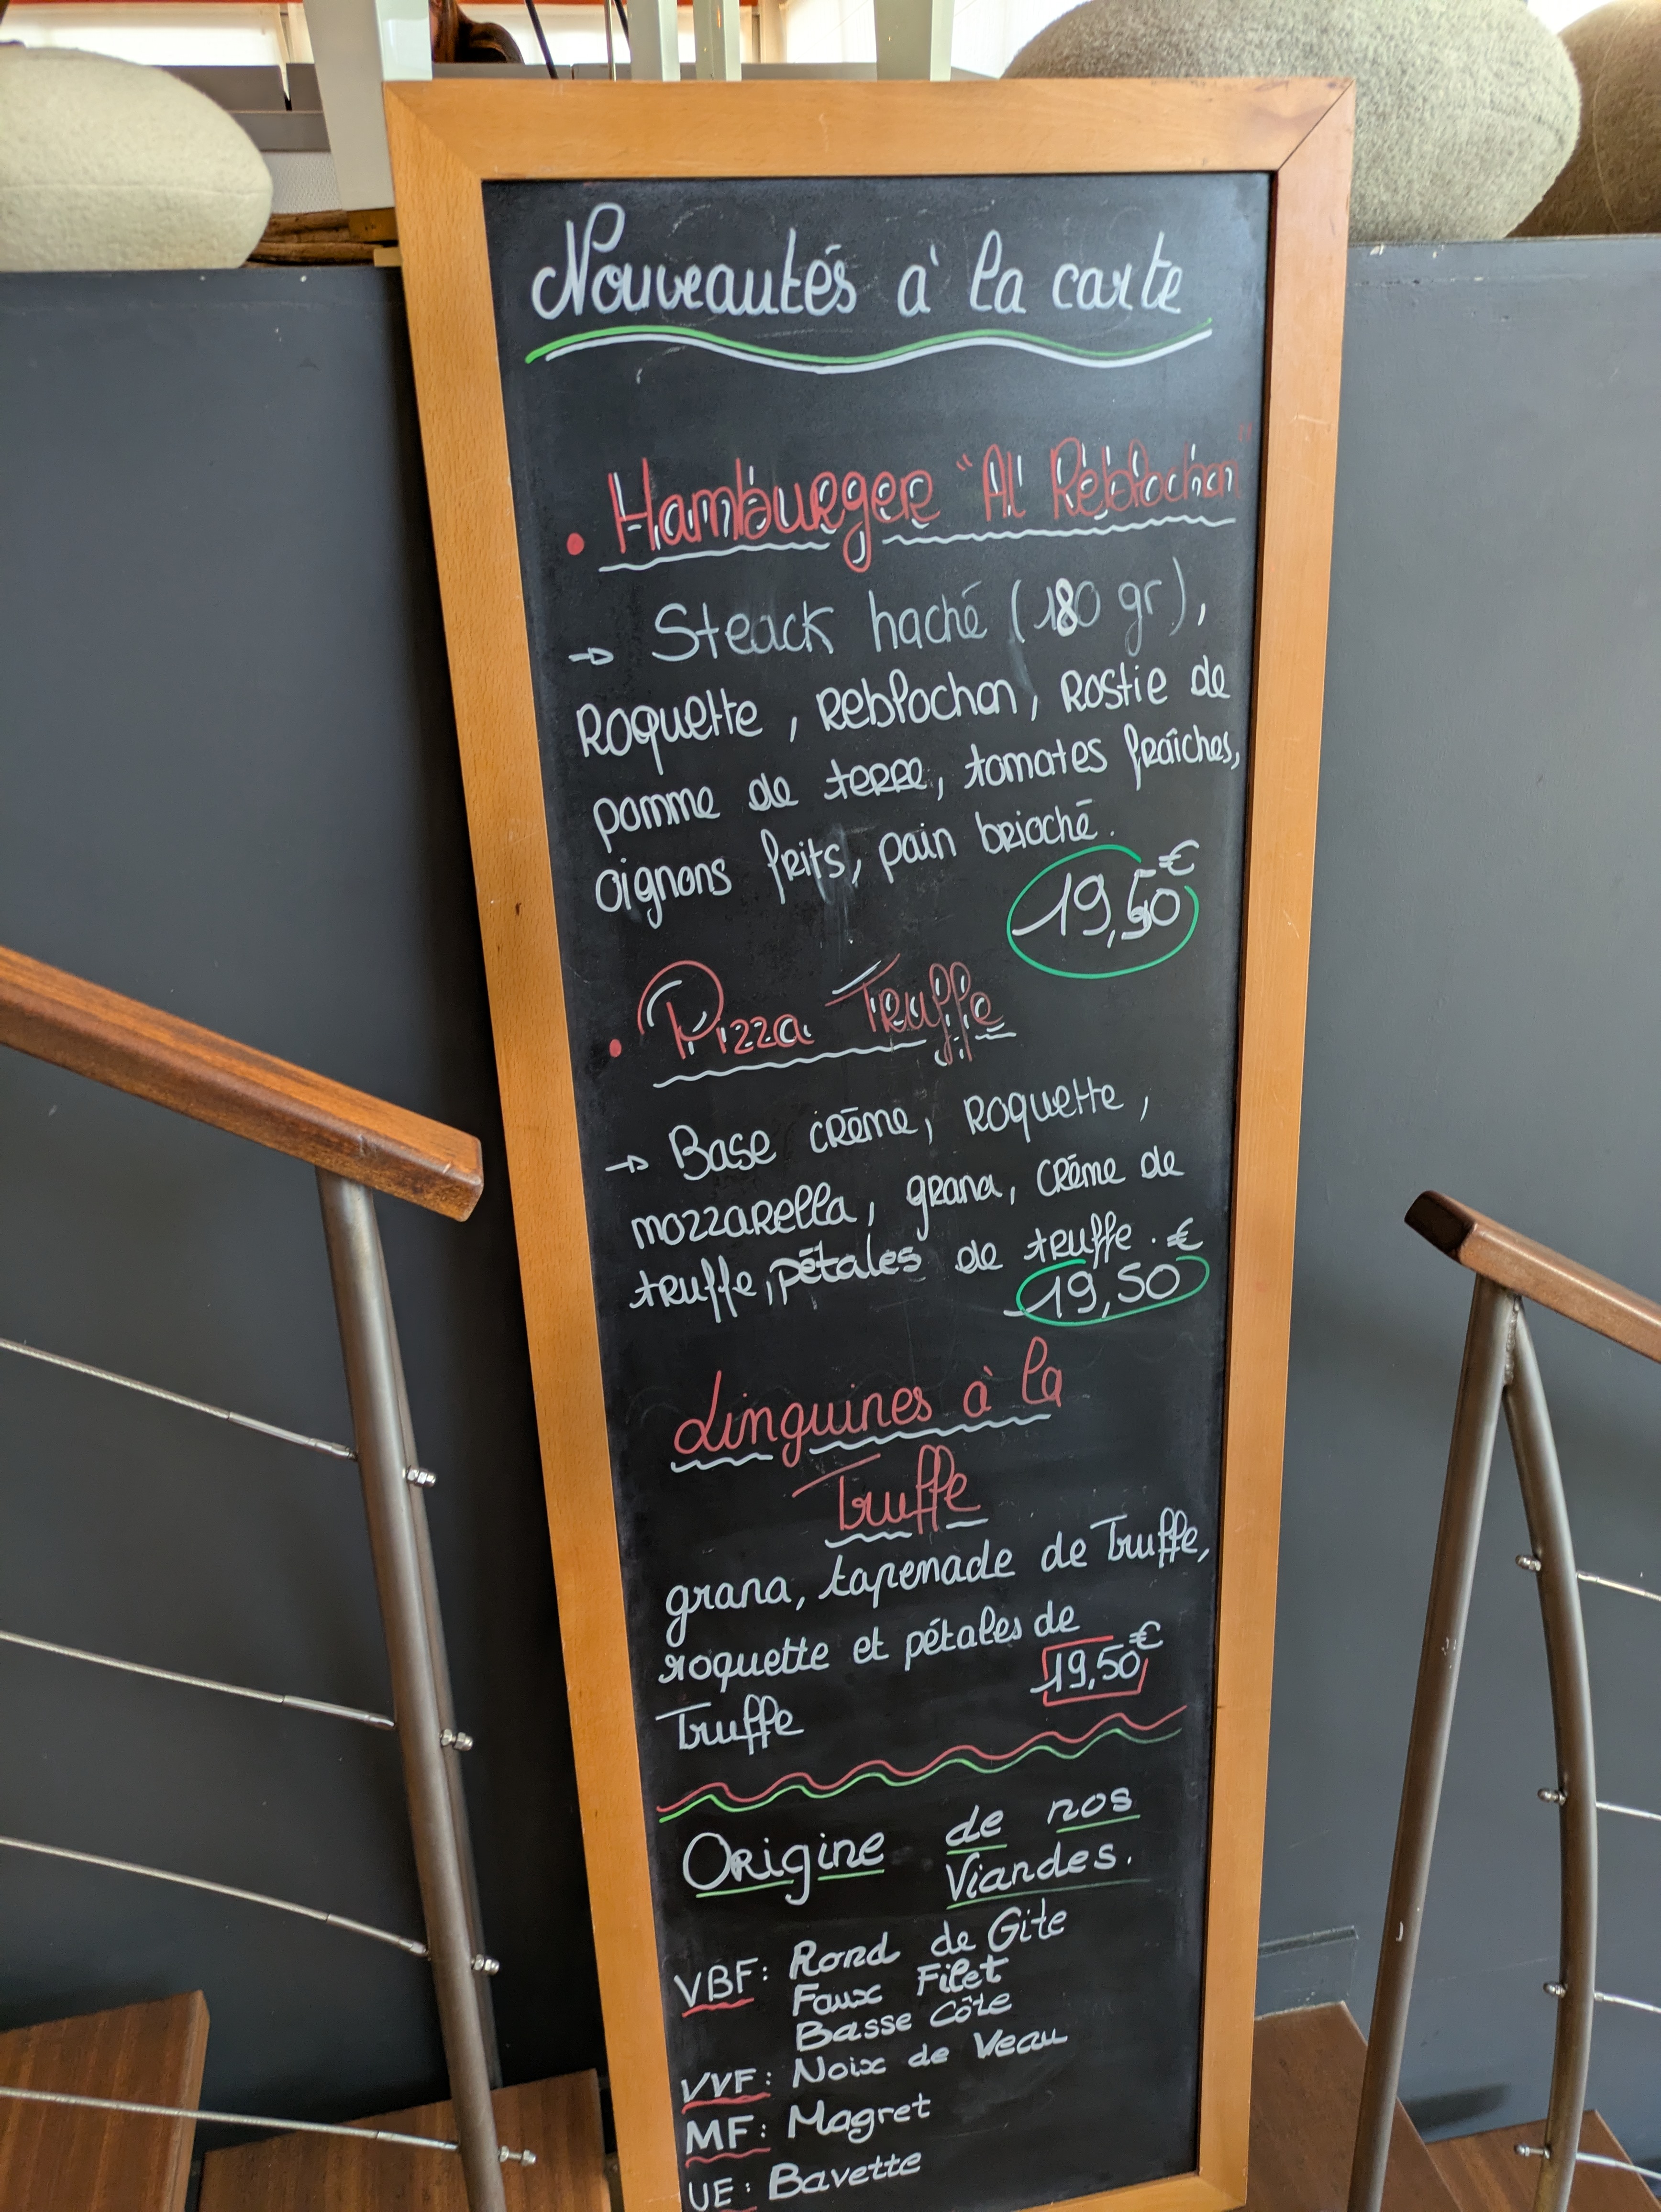 Nouveautés à la carte
• Hamburger "Al Reblochon"
→ Steack haché (180 gr),
Roquette, Reblochon, Rostie de
pomme de terre, tomates fraîches,
oignons frits, pain brioché.
19,50 €
• Pizza Truffe
→ Base crème, roquette,
mozzarella, grana, crème de
truffe, pétales de truffe.
19,50 €
Linguines à la
Truffe
grana, tapenade de Truffe,
roquette et pétales de
Truffe
19,50 €
Origine de nos
Viandes.
VBF: Rond de Gite
Faux Filet
Basse Côte
VVF: Noix de Veau
MF: Magret
UE: Bavette